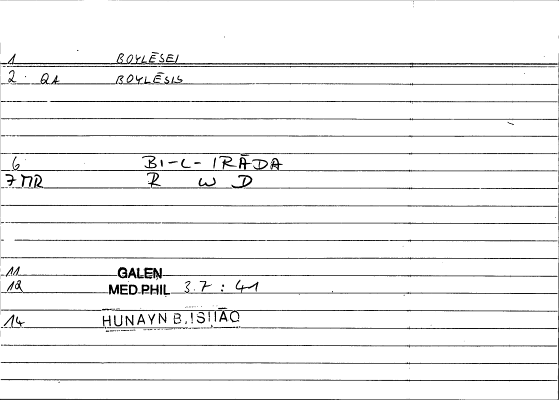 1 BOYLĒSEI
2 QA BOYLĒSIS
6 BI-L-IRĀDA
7 MR R W D
11 GALEN
12 MED.PHIL 3.7 : 41
14 HUNAYN B. ISHĀQ